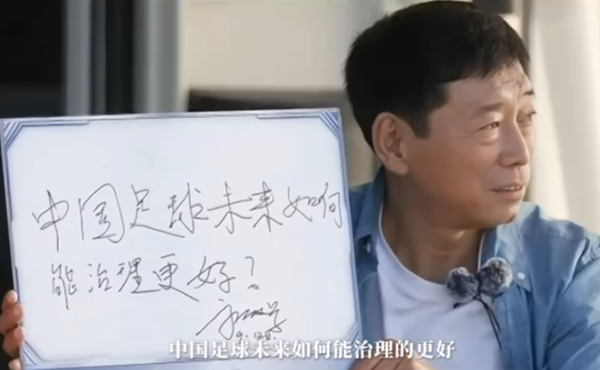 中国足球未来如何
能治理更好？
中国足球未来如何能治理的更好